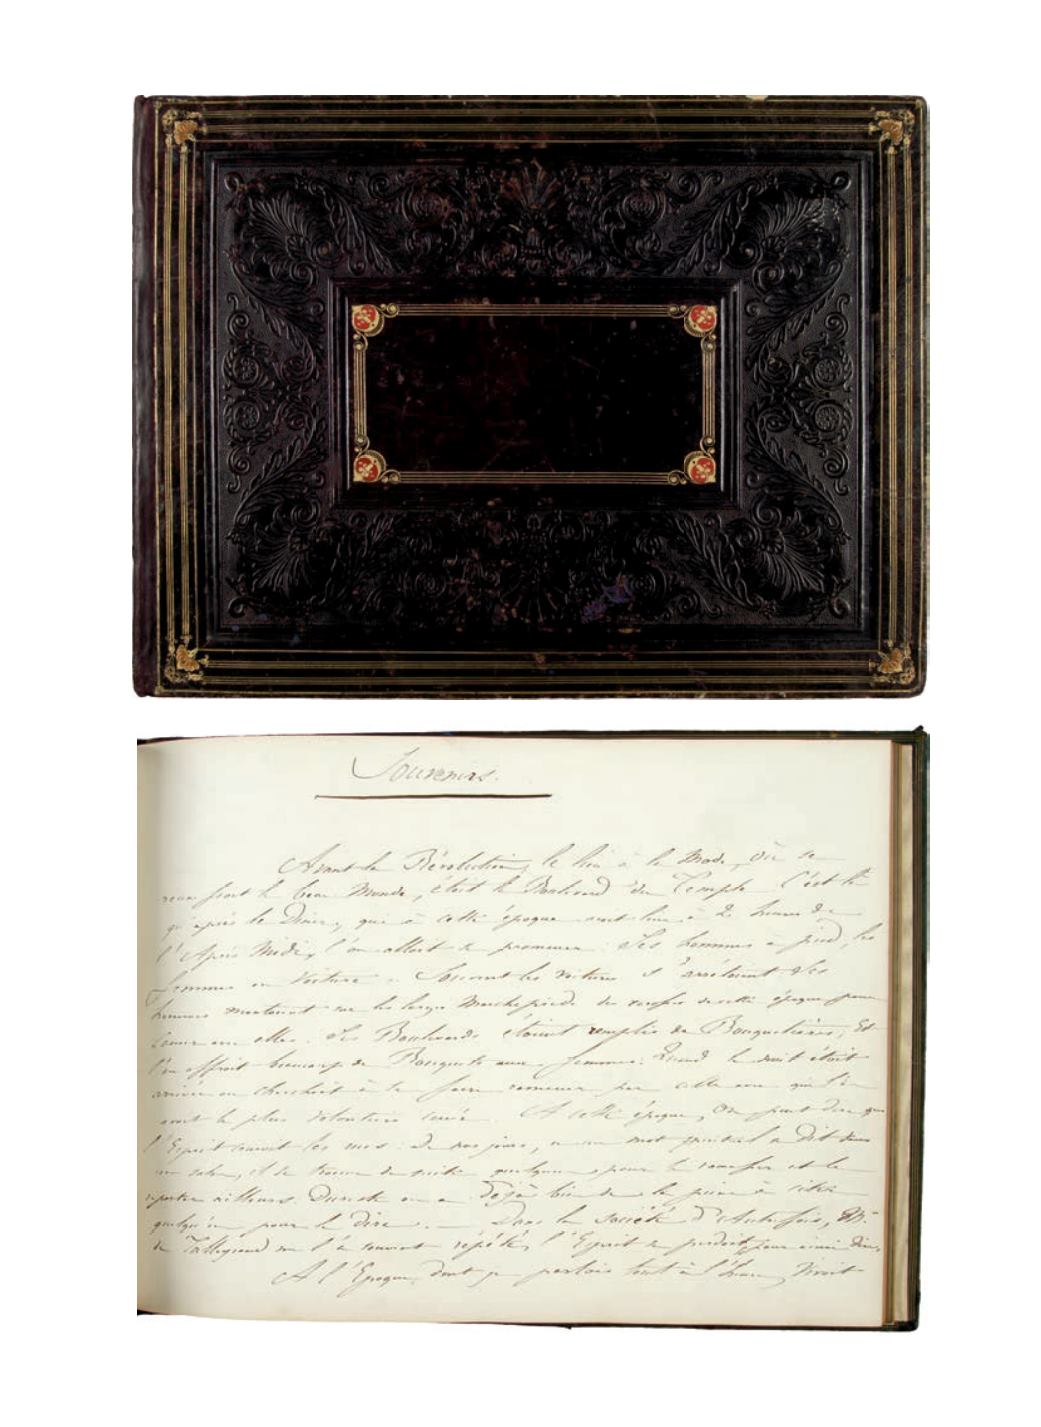 Souvenirs.
Avant la Révolution, le lieu à la Mode, où se
réunissait le beau Monde, étoit le Boulevard du Temple. C'est là
qu'après le Diner, qui à cette époque avait lieu à 2 heures de
l'Après Midi, l'on alloit se promener. Les hommes à pied, les
femmes en Voiture. Souvent les voitures s'arrêtoient & les
hommes montoient sur les larges Marchepieds de cette époque pour
causer avec elles. Les Boulevards étoient remplis de Bouquetières, Et
l'on offroit beaucoup de Bouquets aux femmes. Quand la nuit étoit
arrivée on cherchoit à se faire ramener par celle avec qui l'on
avoit le plus volontiers causé. A cette époque, On peut dire que
l'Esprit couroit les rues. De nos jours, si un mot spirituel a Dit dans
un salon, il se trouve de suite quelqu'un pour le ramasser et le
reporter ailleurs. Ensuite on a Déjà bien de la peine à citer
quelqu'un pour le dire. — Dans la Société d'Autrefois, Mr.
de Talleyrand me l'a souvent répété, l'Esprit se perdoit pour ainsi dire,
A l'Epoque dont je parlois tout à l'heure, vivoit